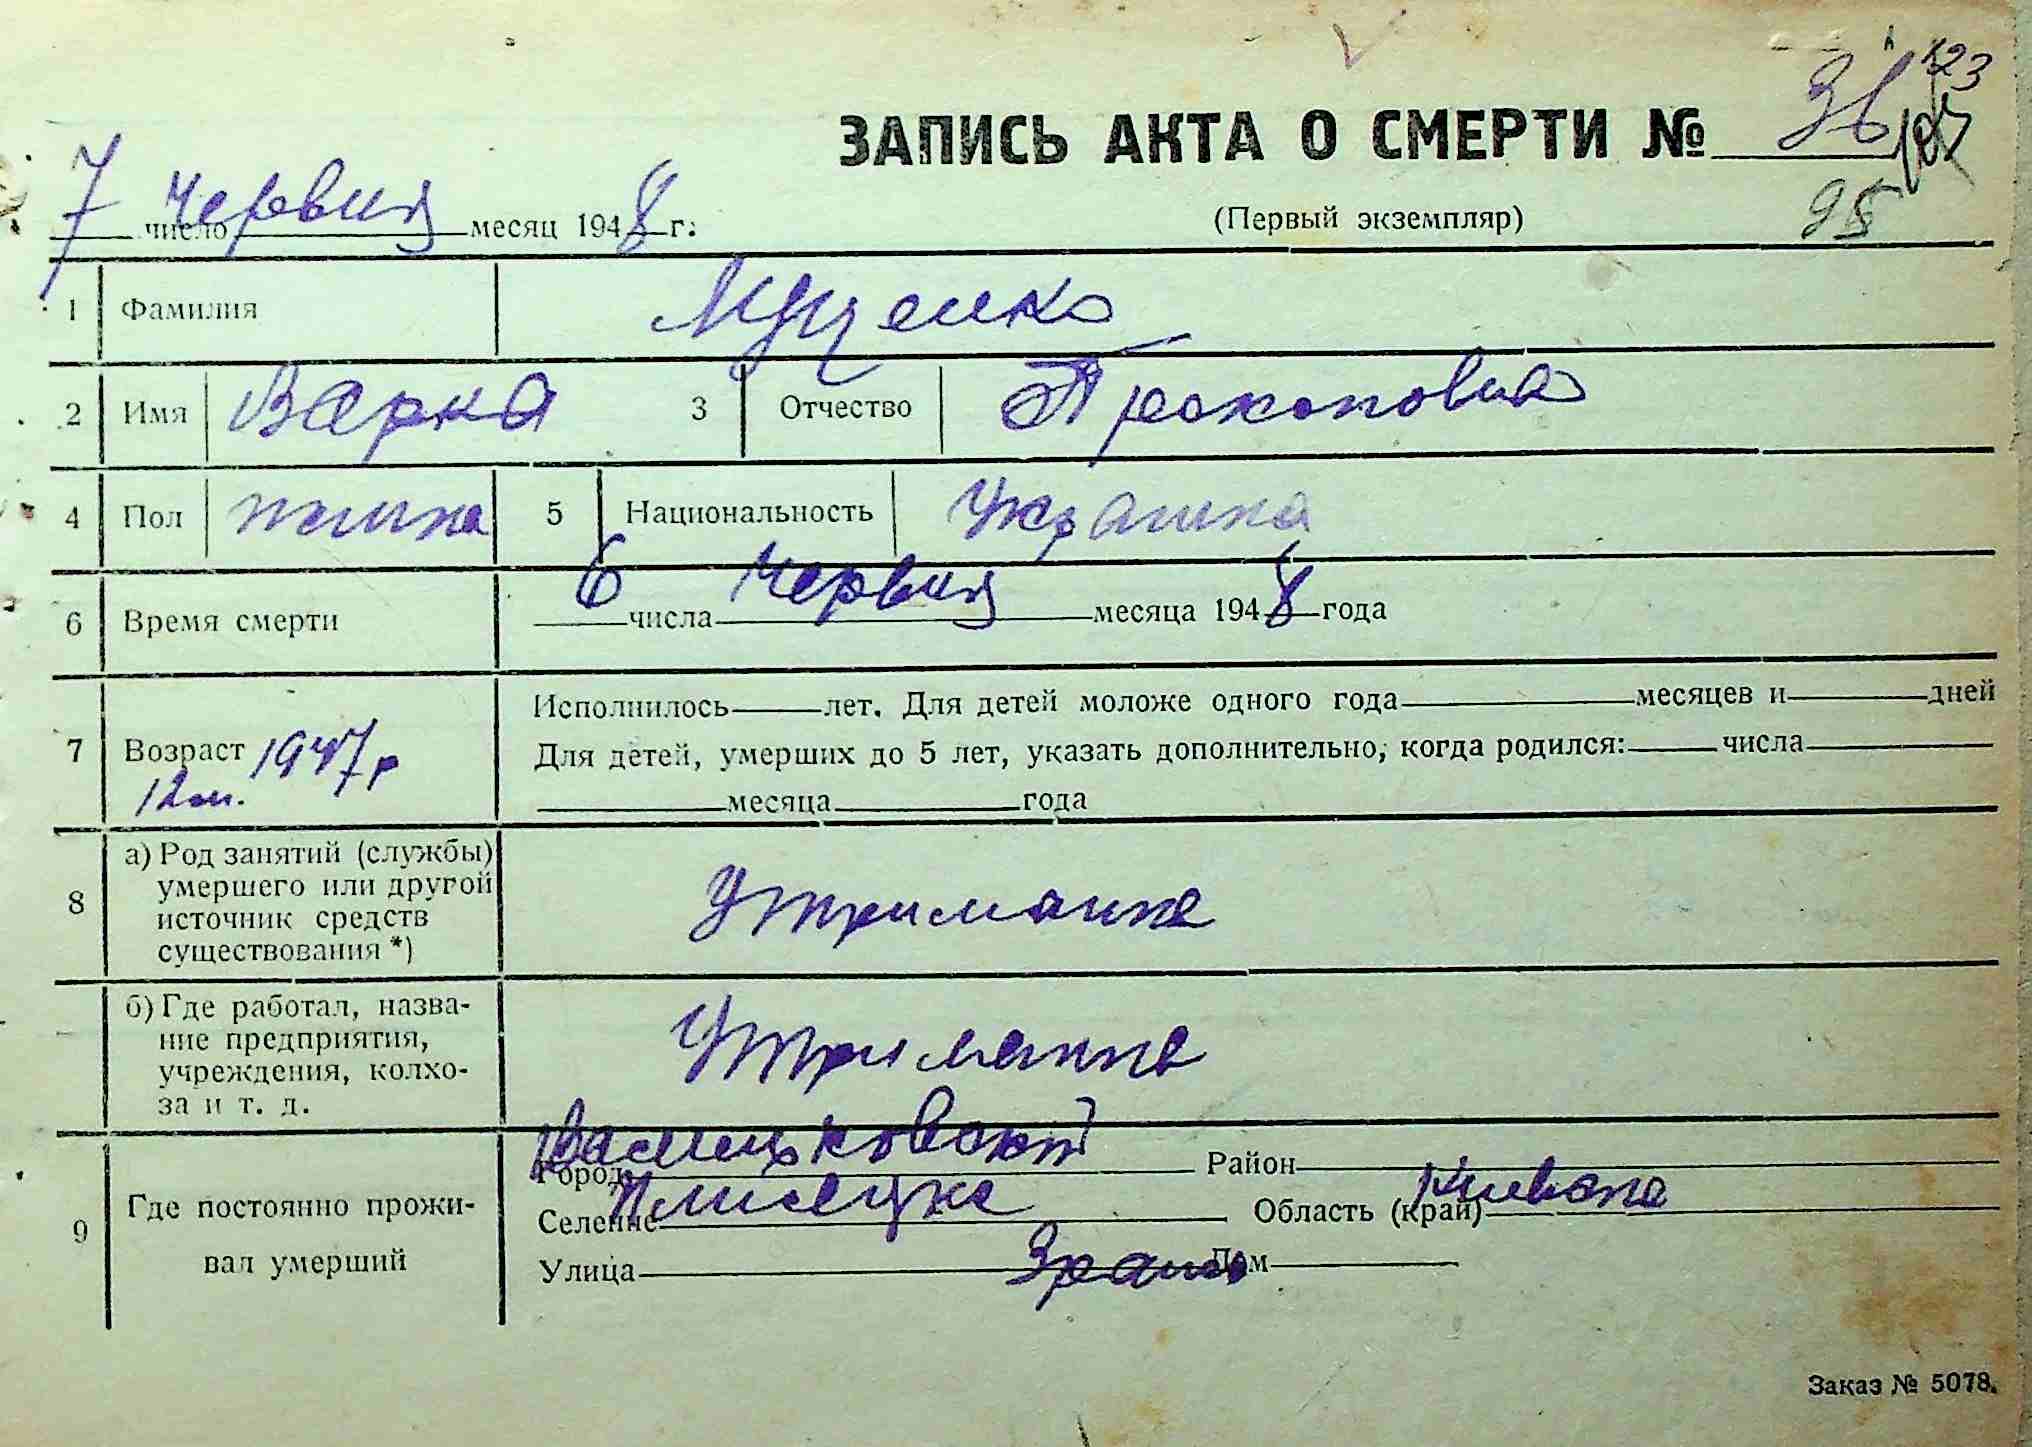 123
ЗАПИСЬ АКТА О СМЕРТИ № 36
7 число червня месяц 1948 г.
(Первый экземпляр) 95
1 Фамилия Муценко
2 Имя Варка 3 Отчество Прокоповна
4 Пол жінка 5 Национальность Українка
6 Время смерти 6 числа червня месяца 1948 года
Исполнилось лет. Для детей моложе одного года месяцев и дней
7 Возраст 1947 р Для детей, умерших до 5 лет, указать дополнительно, когда родился: числа
12 м. месяца года
8 а) Род занятий (службы)
умершего или другой
источник средств
существования *)
Утриманка
б) Где работал, назва-
ние предприятия,
учреждения, колхо-
за и т. д.
Утриманка
9 Где постоянно прожи-
вал умерший
Город Васильковский Район
Селение Плисецке Область (край) Київська
Улица Дом
Заказ № 5078.